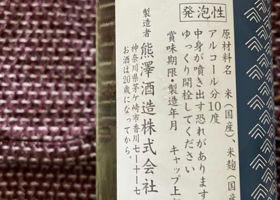 発泡性
原材料名 米(国産)、米麹(国産
アルコール分10度
中身が噴き出す恐れがあります
ゆっくり開栓してください
賞味期限・製造年月 キャップ上
製造者
熊澤酒造株式会社
神奈川県茅ヶ崎市香川七ー十ー七
お酒は20歳になってから。